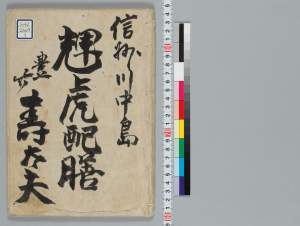 信州川中島
輝虎配膳
豊竹
寿太夫